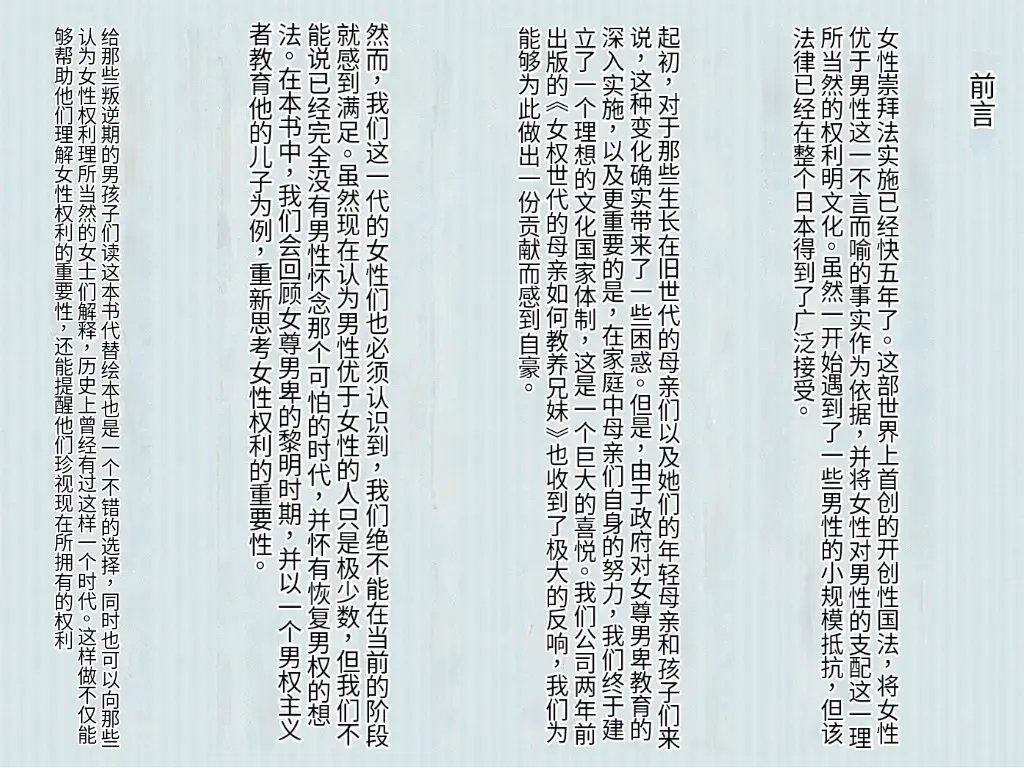 前言
女性崇拜法实施已经快五年了。这部世界上首创的开创性国法，将女性
优于男性这一不言而喻的事实作为依据，并将女性对男性的支配这一理
所当然的权利明文化。虽然一开始遇到了一些男性的小规模抵抗，但该
法律已经在整个日本得到了广泛接受。
起初，对于那些生长在旧世代的母亲们以及她们的年轻母亲和孩子们来
说，这种变化确实带来了一些困惑。但是，由于政府对女尊男卑教育的
深入实施，以及更重要的是，在家庭中母亲们自身的努力，我们终于建
立了一个理想的文化国家体制，这是一个巨大的喜悦。我们公司两年前
出版的《女权世代的母亲如何教养兄妹》也收到了极大的反响，我们为
能够为此做出一份贡献而感到自豪。
然而，我们这一代的女性们也必须认识到，我们绝不能在当前的阶段
就感到满足。虽然现在认为男性优于女性的人只是极少数，但我们不
能说已经完全没有男性怀念那个可怕的时代，并怀有恢复男权的想
法。在本书中，我们会回顾女尊男卑的黎明时期，并以一个男权主义
者教育他的儿子为例，重新思考女性权利的重要性。
给那些叛逆期的男孩子们读这本书代替绘本也是一个不错的选择，同时也可以向那些
认为女性权利理所当然的女士们解释，历史上曾经有过这样一个时代。这样做不仅能
够帮助他们理解女性权利的重要性，还能提醒他们珍视现在所拥有的权利